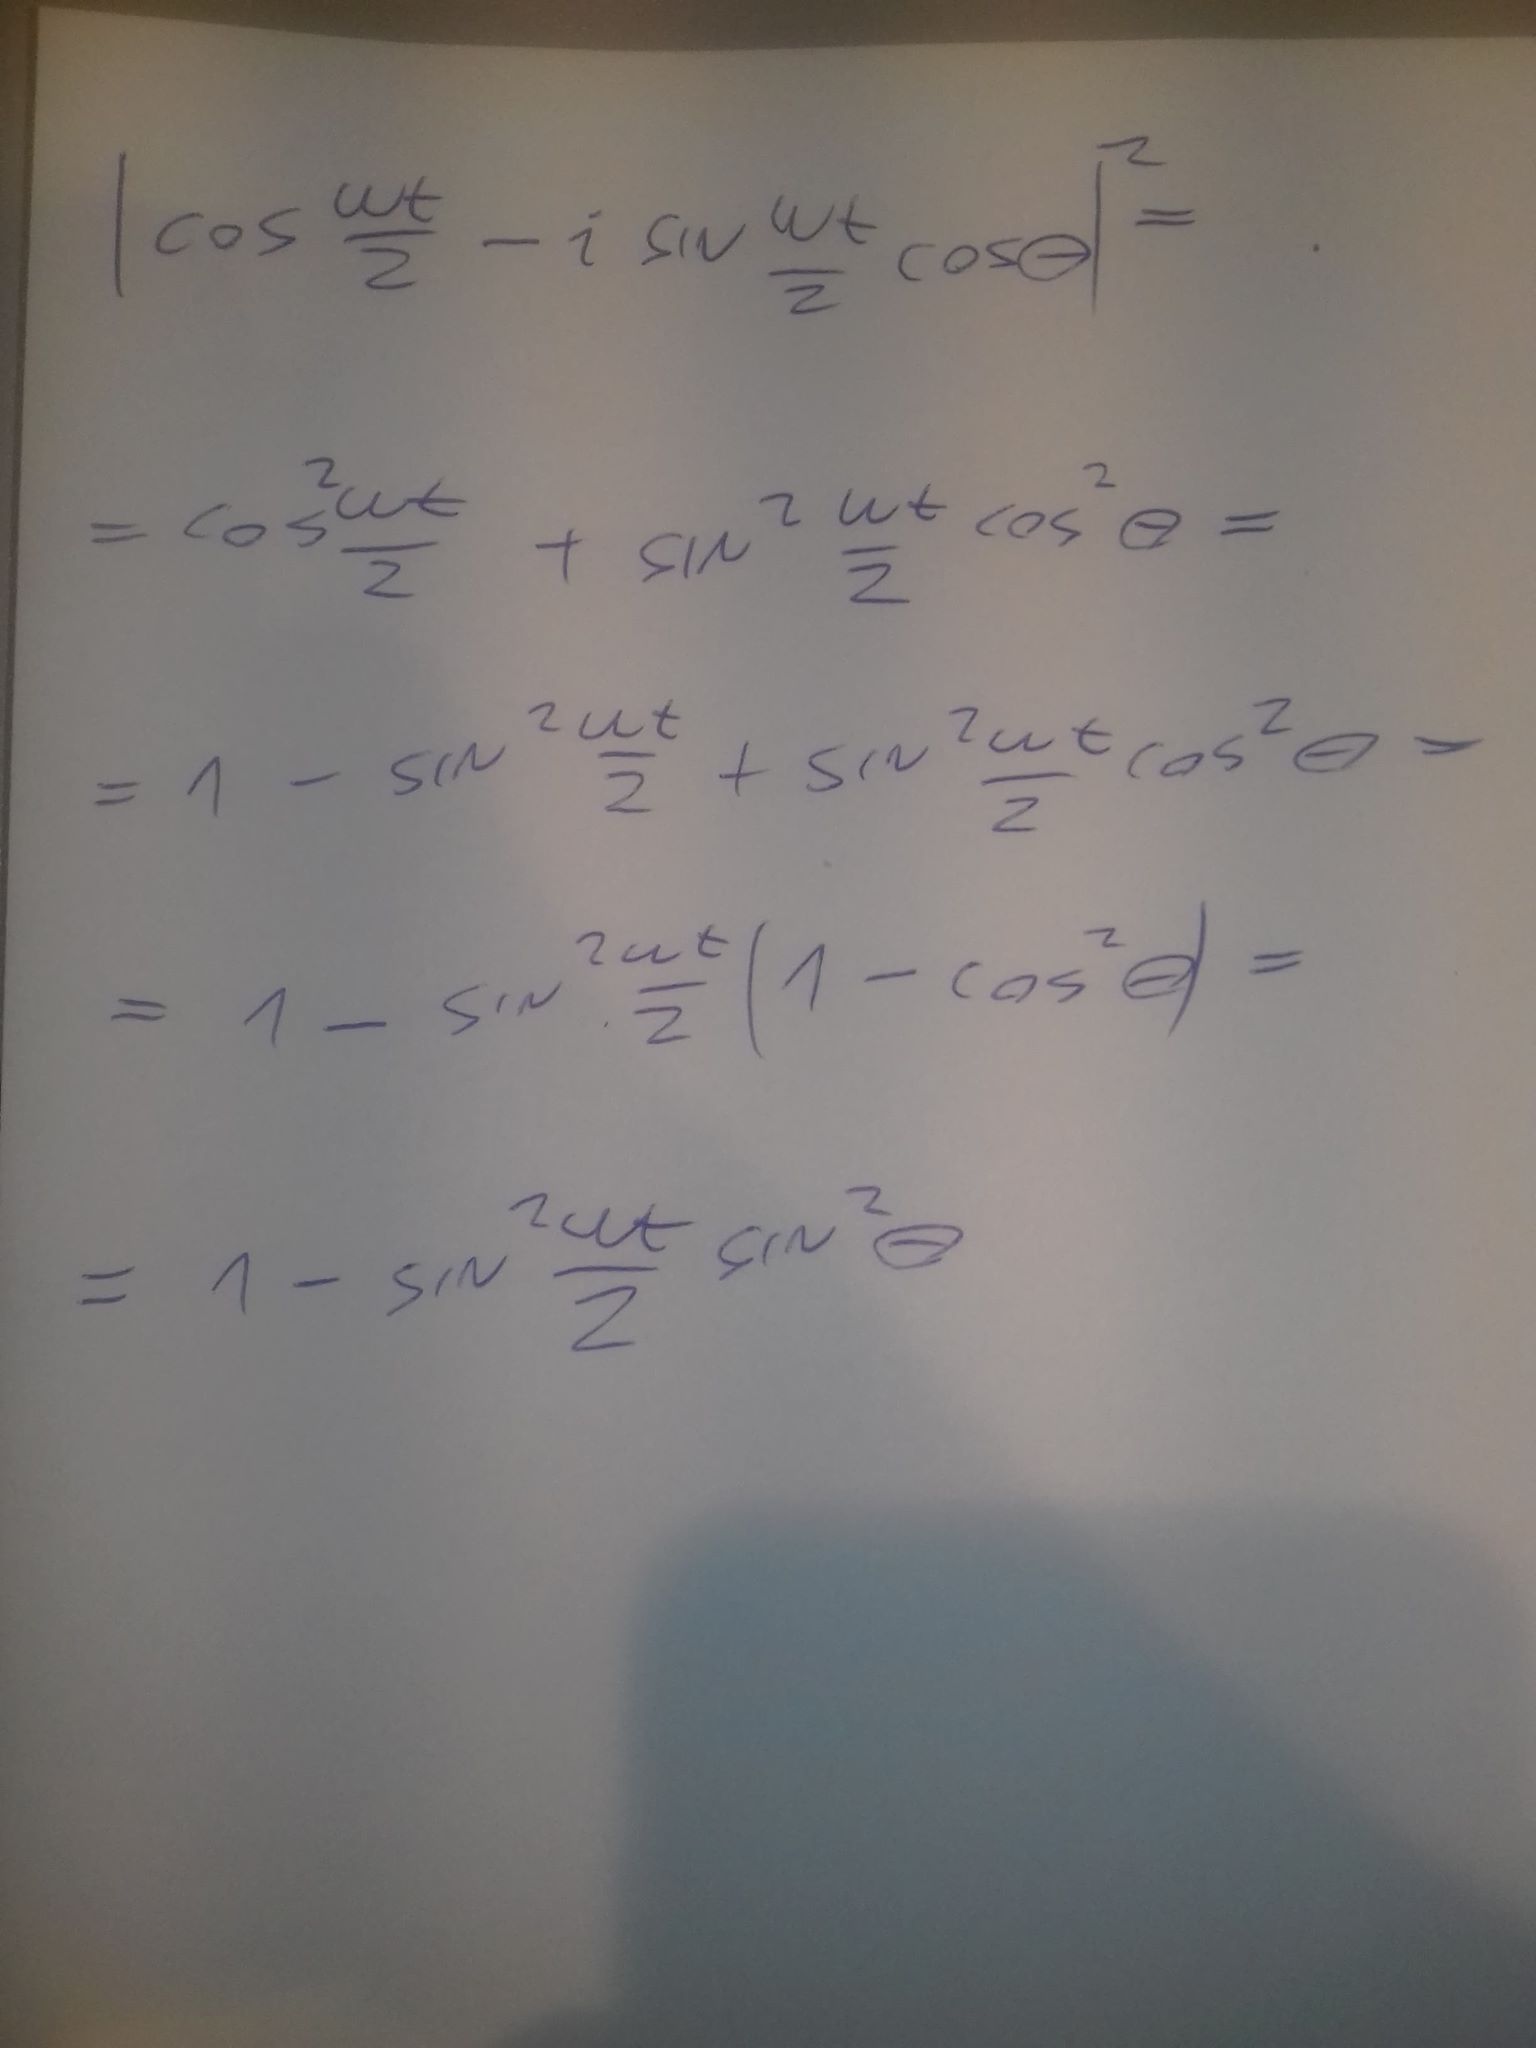 |cos ωt/2 − i sin ωt/2 cosθ|² =
= cos² ωt/2 + sin² ωt/2 cos²θ =
= 1 − sin² ωt/2 + sin² ωt/2 cos²θ =
= 1 − sin² ωt/2 (1 − cos²θ) =
= 1 − sin² ωt/2 sin²θ